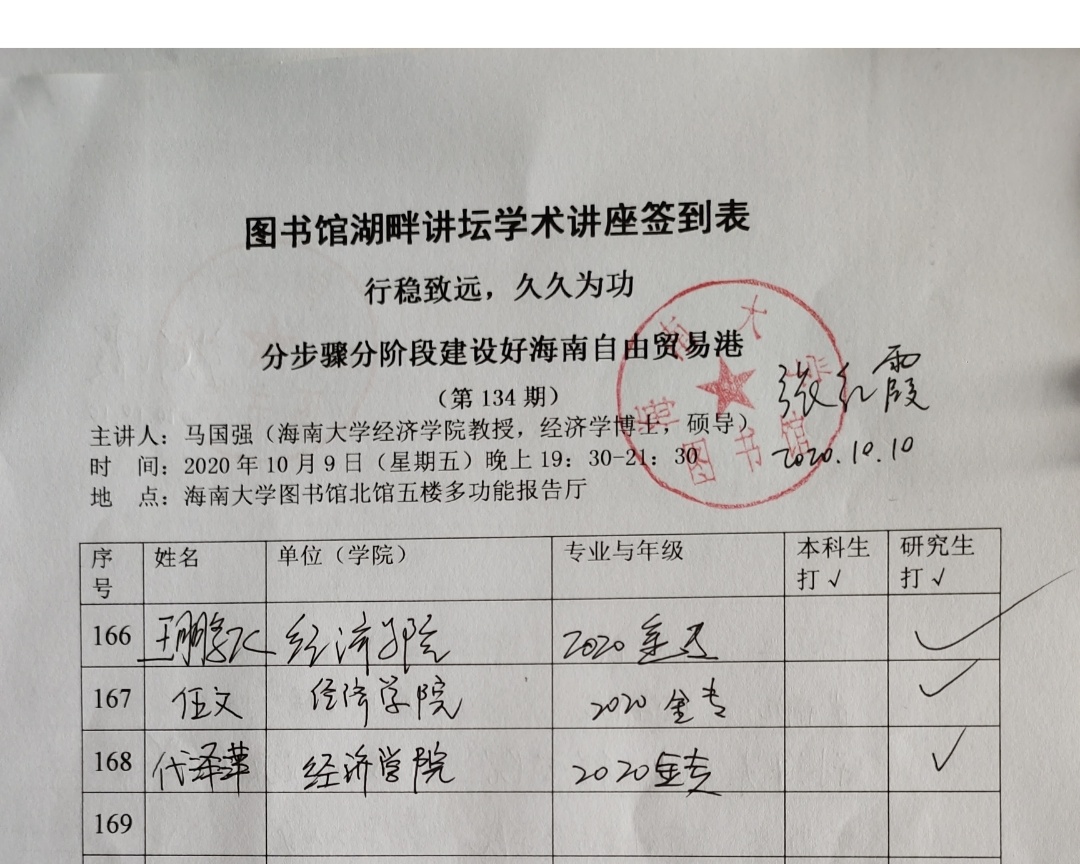 图书馆湖畔讲坛学术讲座签到表
行稳致远，久久为功
分步骤分阶段建设好海南自由贸易港
（第 134 期）
主讲人：马国强（海南大学经济学院教授，经济学博士，硕导）
时　间：2020 年 10 月 9 日（星期五）晚上 19：30-21：30
地　点：海南大学图书馆北馆五楼多功能报告厅
海南大学
图书馆
张红霞
2020.10.10
序号 姓名 单位（学院） 专业与年级 本科生打√ 研究生打√
166 经济学院 2020 金专 √
167 任文 经济学院 2020 金专 √
168 代泽苹 经济学院 2020金专 √
169